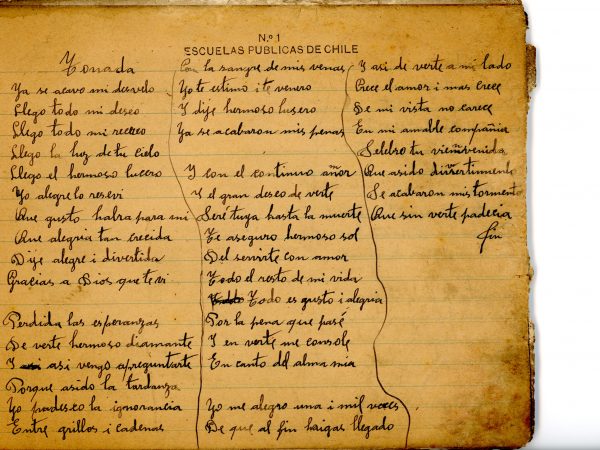 N.o 1
ESCUELAS PUBLICAS DE CHILE
Tonada
Ya se acavo mi desvelo
Llego todo mi deseo
Llego todo mi recreo
Llego la luz de tu cielo
Llego el hermoso lucero
Yo alegre lo resevi
Que gusto habra para mi
Que alegria tan crecida
Dije alegre i divertida
Gracias a Dios que te vi
Perdida las esperanzas
De verte hermoso diamante
I asi vengo apreguntarte
Porque asido la tardanza
Yo padesco la ignorancia
Entre grillos i cadenas
Con la sangre de mis venas
Yo te estimo i te venero
Y dije hermoso lusero
Ya se acabaron mis penas
Y con el continuo añor
Y el gran deseo de verte
Seré tuya hasta la muerte
Te aseguro hermoso sol
Del servirte con amor
Todo el resto de mi vida
Todo es gusto i alegria
Por la pena que pasé
Y en verte me consolé
En canto del alma mia
Yo me alegro una i mil veces
De que al fin haigas llegado
Y asi de verte a mi lado
Crece el amor i mas crece
De mi vista no carece
En mi amable compañia
Selebro tu vienvenida
Que asido divertimento
Se acabaron mis tormento
Que sin verte padecia
fin